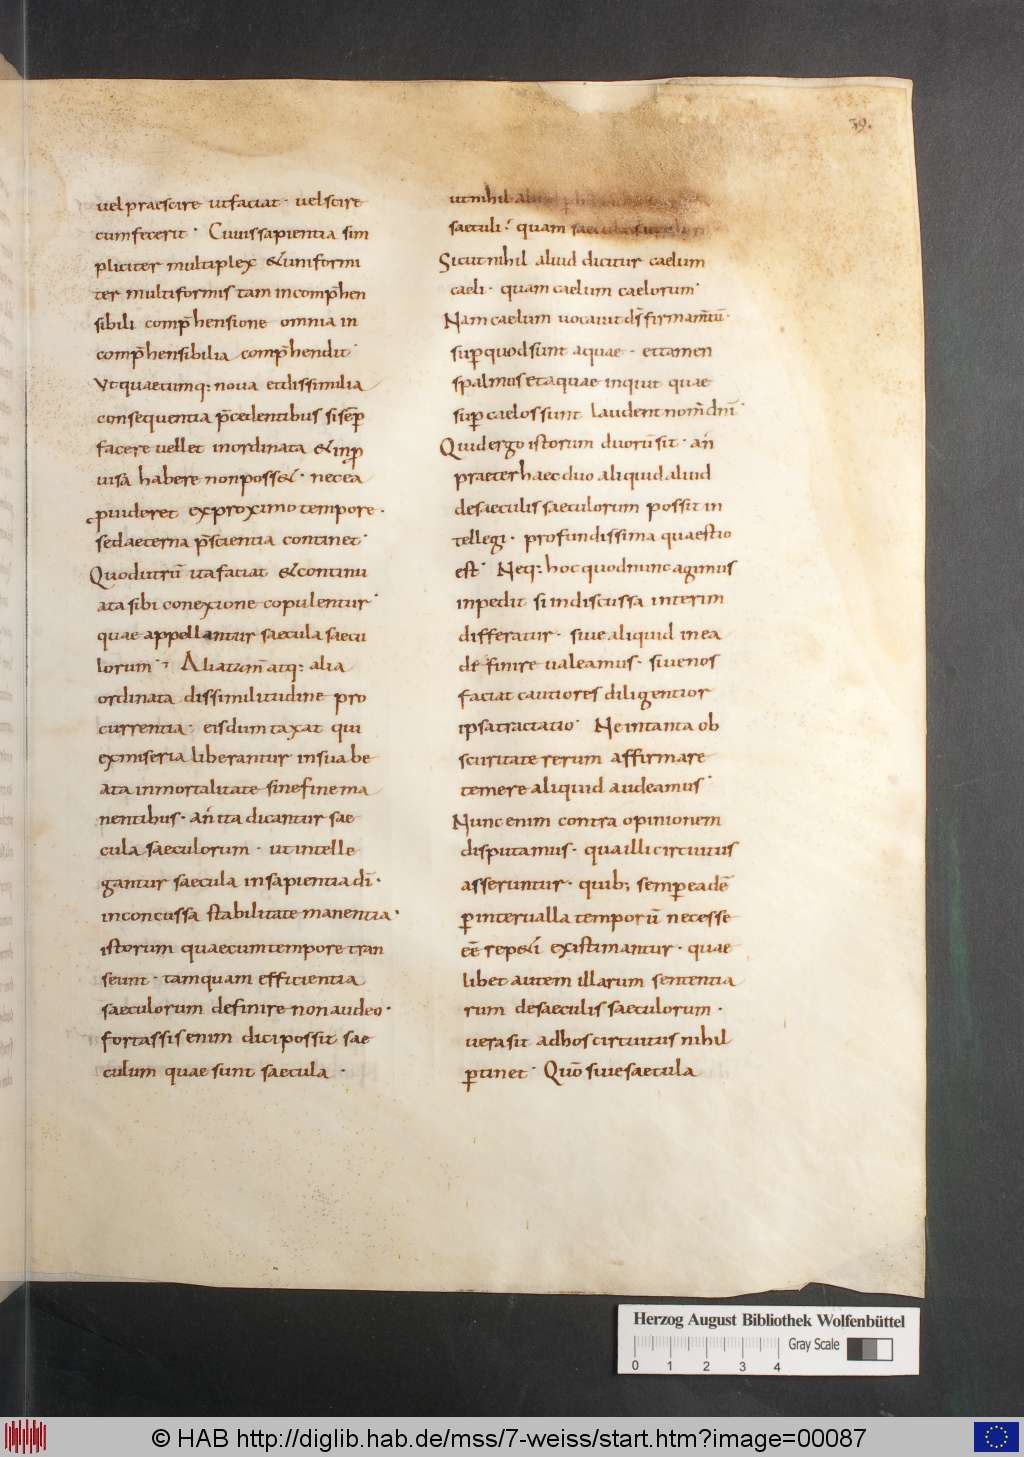 39.
uel praescire ut faciat · uel scire
cum fecerit · Cuius sapientia sim
pliciter multiplex & uniformi
ter multiformis tam incomp̄hen
sibili comp̄hensione omnia in
comp̄hensibilia comp̄hendit ·
Vt quaecumq: noua et dissimilia
consequentia p̄cedentibus si semꝑ
facere uellet inordinata & inꝓ
uisa habere non poss& · nec ea
ꝓuideret ex proximo tempore ·
sed aeterna p̄scientia contineret ·
Quod utrū ita faciat & continu
ata sibi conexione copulentur ·
quae appellantur saecula saecu
lorum · Alia tam̄ atq: alia
ordinata dissimilitudine pro
currentia · eis dumtaxat qui
ex miseria liberantur in sua be
ata inmortalitate sine fine ma
nentibus · an ita dicantur sae
cula saeculorum · ut intelle
gantur saecula in sapientia dī ·
inconcussa stabilitate manentia ·
istorum quae cum tempore tran
seunt · tamquam efficientia
saeculorum definire non audeo ·
fortassis enim dici possit sae
culum quae sunt saecula ·
ut nihil
saeculi · quam
Sicut nihil aliud dicitur caelum
caeli · quam caelum caelorum ·
Nam caelum uocauit ds̄ firmam̄tū ·
suꝑ quod sunt aquae · et tamen
spalmus et aquae inquit quae
suꝑ caelos sunt laudent nom̄ dn̄i ·
Quid ergo istorum duorū sit · an
praeter haec duo aliquid aliud
de saeculis saeculorum possit in
tellegi · profundissima quaestio
est · Neq: hoc quod nunc agimus
inpedit si indiscussa interim
differatur · siue aliquid in ea
definire ualeamus · siue nos
faciat cautiores diligentior
ipsa tractatio · Ne in tanta ob
scuritate rerum affirmare
temere aliquid audeamus ·
Nunc enim contra opinionem
disputamus · qua illi circuitus
asseruntur · quib; semꝑ eadē
ꝑ interualla temporū necesse
eē repeti existimantur · quae
libet autem illarum sententia
rum de saeculis saeculorum ·
uera sit ad hos circuitus nihil
ꝑtinet · Quō siue saecula
Herzog August Bibliothek Wolfenbüttel
Gray Scale
0 1 2 3 4
© HAB http://diglib.hab.de/mss/7-weiss/start.htm?image=00087